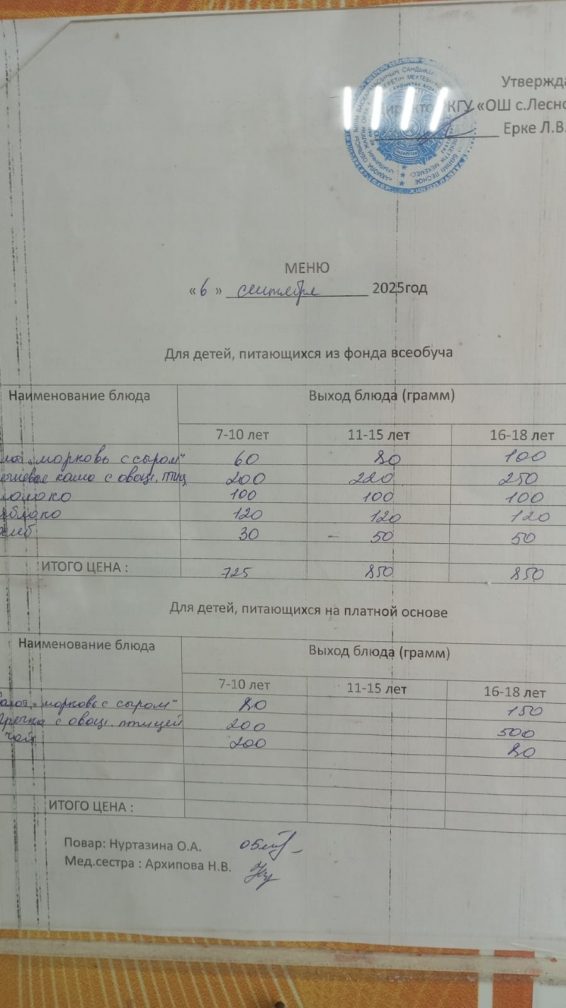 Утвержда
Директор КГУ «ОШ с.Лесно
Ерке Л.В.
МЕНЮ
«6» сентября 2025год
Для детей, питающихся из фонда всеобуча
Наименование блюда Выход блюда (грамм)
7-10 лет 11-15 лет 16-18 лет
лат „морковь с сыром" 60 80 100
каша с овощ. птиц 200 220 250
молоко 100 100 100
яблоко 120 120 120
хлеб 30 – 50 50
ИТОГО ЦЕНА : 725 850 850
Для детей, питающихся на платной основе
Наименование блюда Выход блюда (грамм)
7-10 лет 11-15 лет 16-18 лет
Салат „морковь с сыром" 80 150
Гречка с овощ. птицей 200 500
чай 200 80
ИТОГО ЦЕНА :
Повар: Нуртазина О.А.
Мед.сестра : Архипова Н.В.